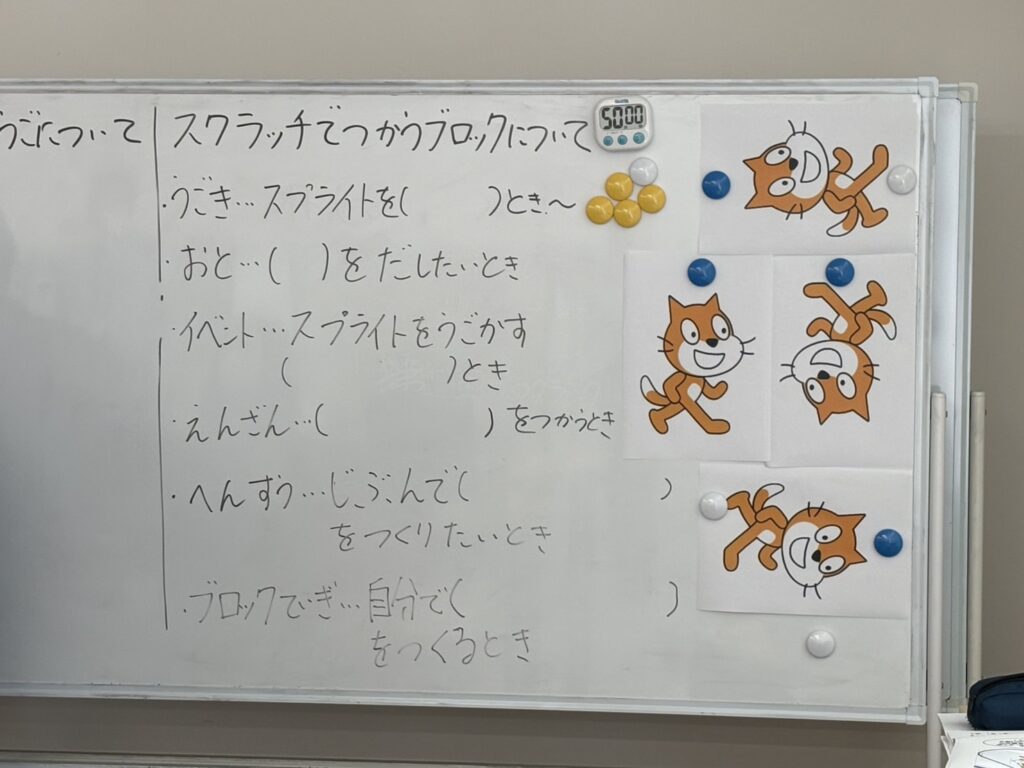 うごについて
スクラッチでつかうブロックについて
5000
・うごき…スプライトを(　　　)とき〜
・おと…(　)をだしたいとき
・イベント…スプライトをうごかす
(　　　　　　)とき
・えんざん…(　　　　　　)をつかうとき
・へんすう…じぶんで(　　　　　　　)
をつくりたいとき
・ブロックていぎ…自分で(　　　　　　　)
をつくるとき